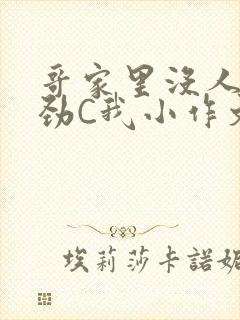 哥家里没人
劲C我小作文
埃莉莎卡諾妮